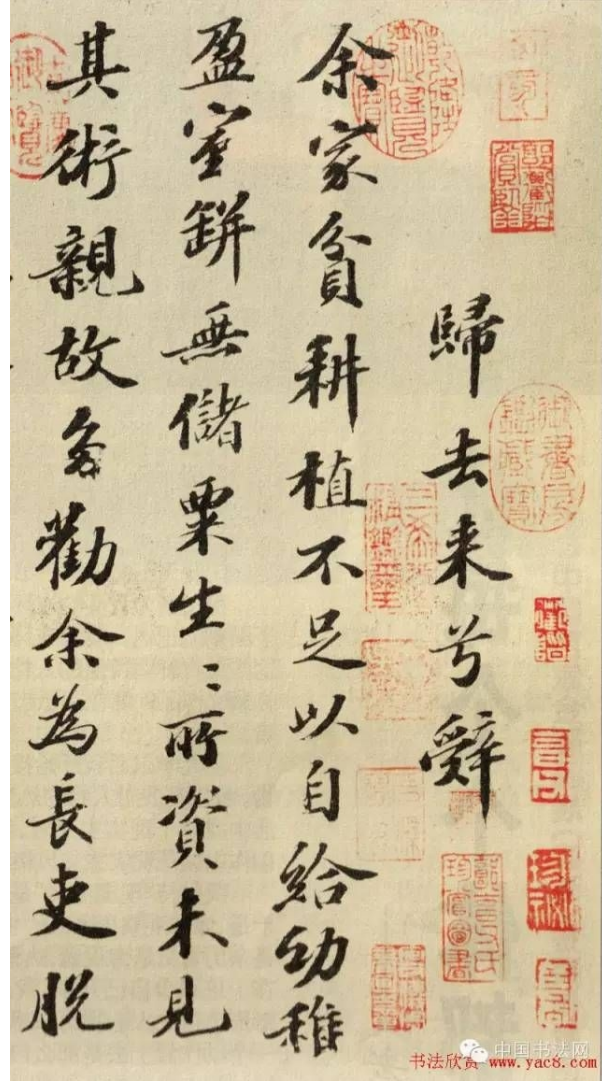 歸去来兮辭
余家貧耕植不足以自給幼稚
盈室缾無儲粟生〻所資未見
其術親故多勸余為長吏脱
御書房鑑藏寶
三希堂精鑑璽
中国书法网
书法欣赏 www.yac8.com